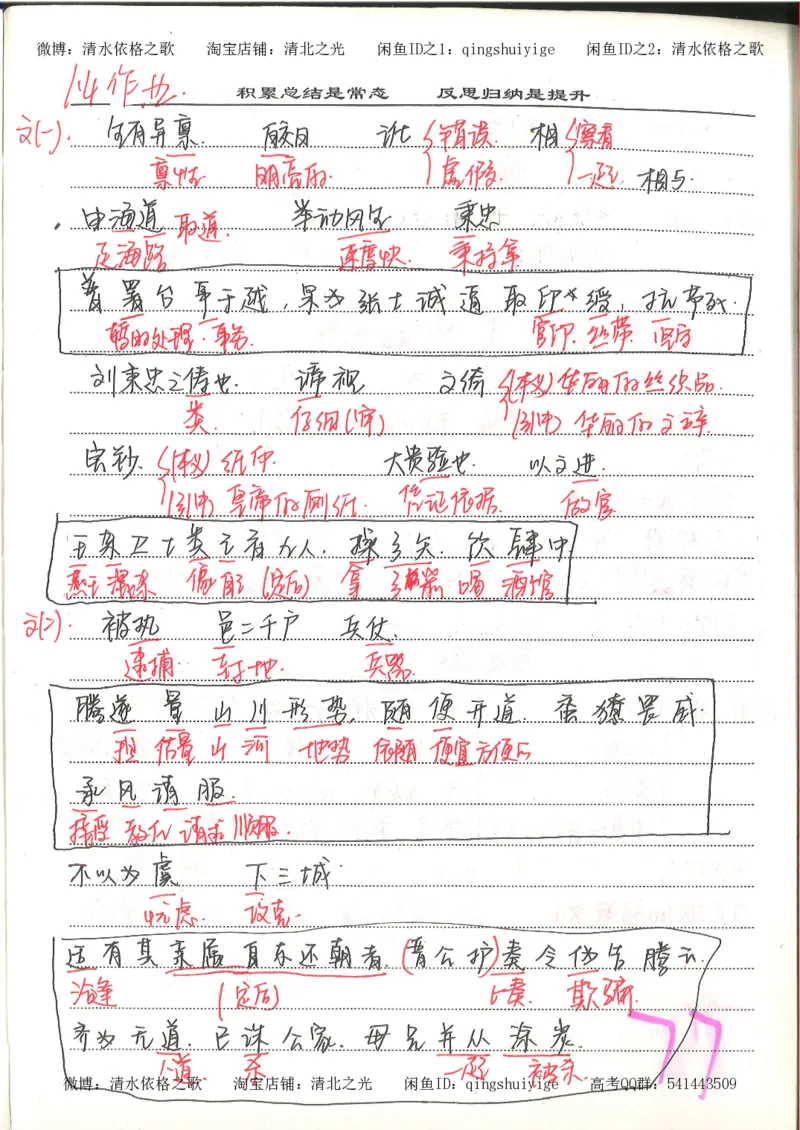 微博：清水依格之歌 淘宝店铺：清北之光 闲鱼ID之1：qingshuiyige 闲鱼ID之2：清水依格之歌
14作业.
积累总结是常态 反思归纳是提升
文(一). 生有异禀. 皎日 讹 {错误 相 {察看
禀性 明亮的 {虚假. {一起 相与.
由海道 取道. 举动风生 秉忠
走海路 速度快. 秉持拿
普署台事于越, 果为张士诚逼取印绶, 抗节死.
暂时处理. 事务. 官印. 丝带.
刘秉忠之俦也. 谛视 文绮 {(本义)华丽的丝织品.
类. 仔细(审) {(引申)华丽的文辞.
宝钞 {(本义)纸币. 大贵验也. 以文进.
{(引申) 凭证依据. 做官
王杂卫士类之者九人, 操弓矢, 饮肆中
燕王 混杂 像自己 (定后) 拿 喝 酒馆
文(二). 被执 邑二千户 兵仗.
逮捕 封地. 兵器.
腾遂量山川形势, 随便开道. 蛮獠畏威
估量 山 河 地势 依随 便宜方便
承风请服.
接受 教化 请求 顺服.
不以为虞 下三城
忧虑. 攻克
适有其亲属自东还朝者, (晋公护)奏令伪告腾云.
恰逢 (定后) 上奏. 欺骗.
齐为无道, 已诛公家, 母兄并从涂炭.
杀 一起 被杀.
77
微博：清水依格之歌 淘宝店铺：清北之光 闲鱼ID：qingshuiyige 高考QQ群：541443509